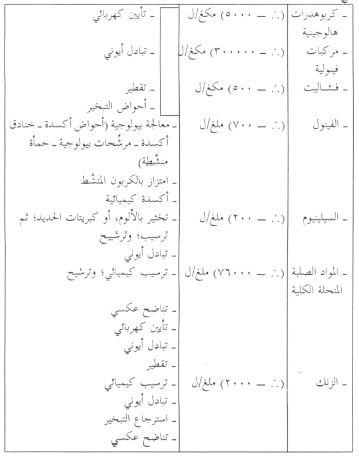 ـ كربوهدرات (٠.٠ — ٥٠٠٠) مكغ/ل ـ تأيين كهربائي
هالوجينية
ـ مركبات (٠.٠ — ٣٠٠٠٠٠) مكغ/ل ـ تبادل أيوني
فينولية
ـ فثاليت (٠.٠ — ٥٠٠) مكغ/ل ـ تقطير
ـ أحواض التبخير
ـ الفينول (٠.٠ — ٧٠٠) ملغ/ل ـ معالجة بيولوجية (أحواض أكسدة ـ خنادق
أكسدة ـ مرشّحات بيولوجية ـ حمأة
منشّطة)
ـ امتزاز بالكربون المنشّط
ـ أكسدة كيميائية
ـ السيلينيوم (٠.٠ — ٢٠٠) ملغ/ل ـ تخثير بالألوم، أو كبريتات الحديد؛ ثم
ترسيب؛ وترشييح
ـ تبادل أيوني
ـ المواد الصلبة (٠.٠ — ٧٦٠٠٠) ملغ/ل ـ ترسيب كيميائي؛ وترشيح
المنحلة الكلية
ـ تناضح عكسي
ـ تأيين كهربائي
ـ تبادل أيوني
ـ تقطير
ـ الزنك (٠.٠ — ٢٠٠٠) ملغ/ل ـ ترسيب كيميائي
ـ تبادل أيوني
ـ استرجاع التبخير
ـ تناضح عكسي